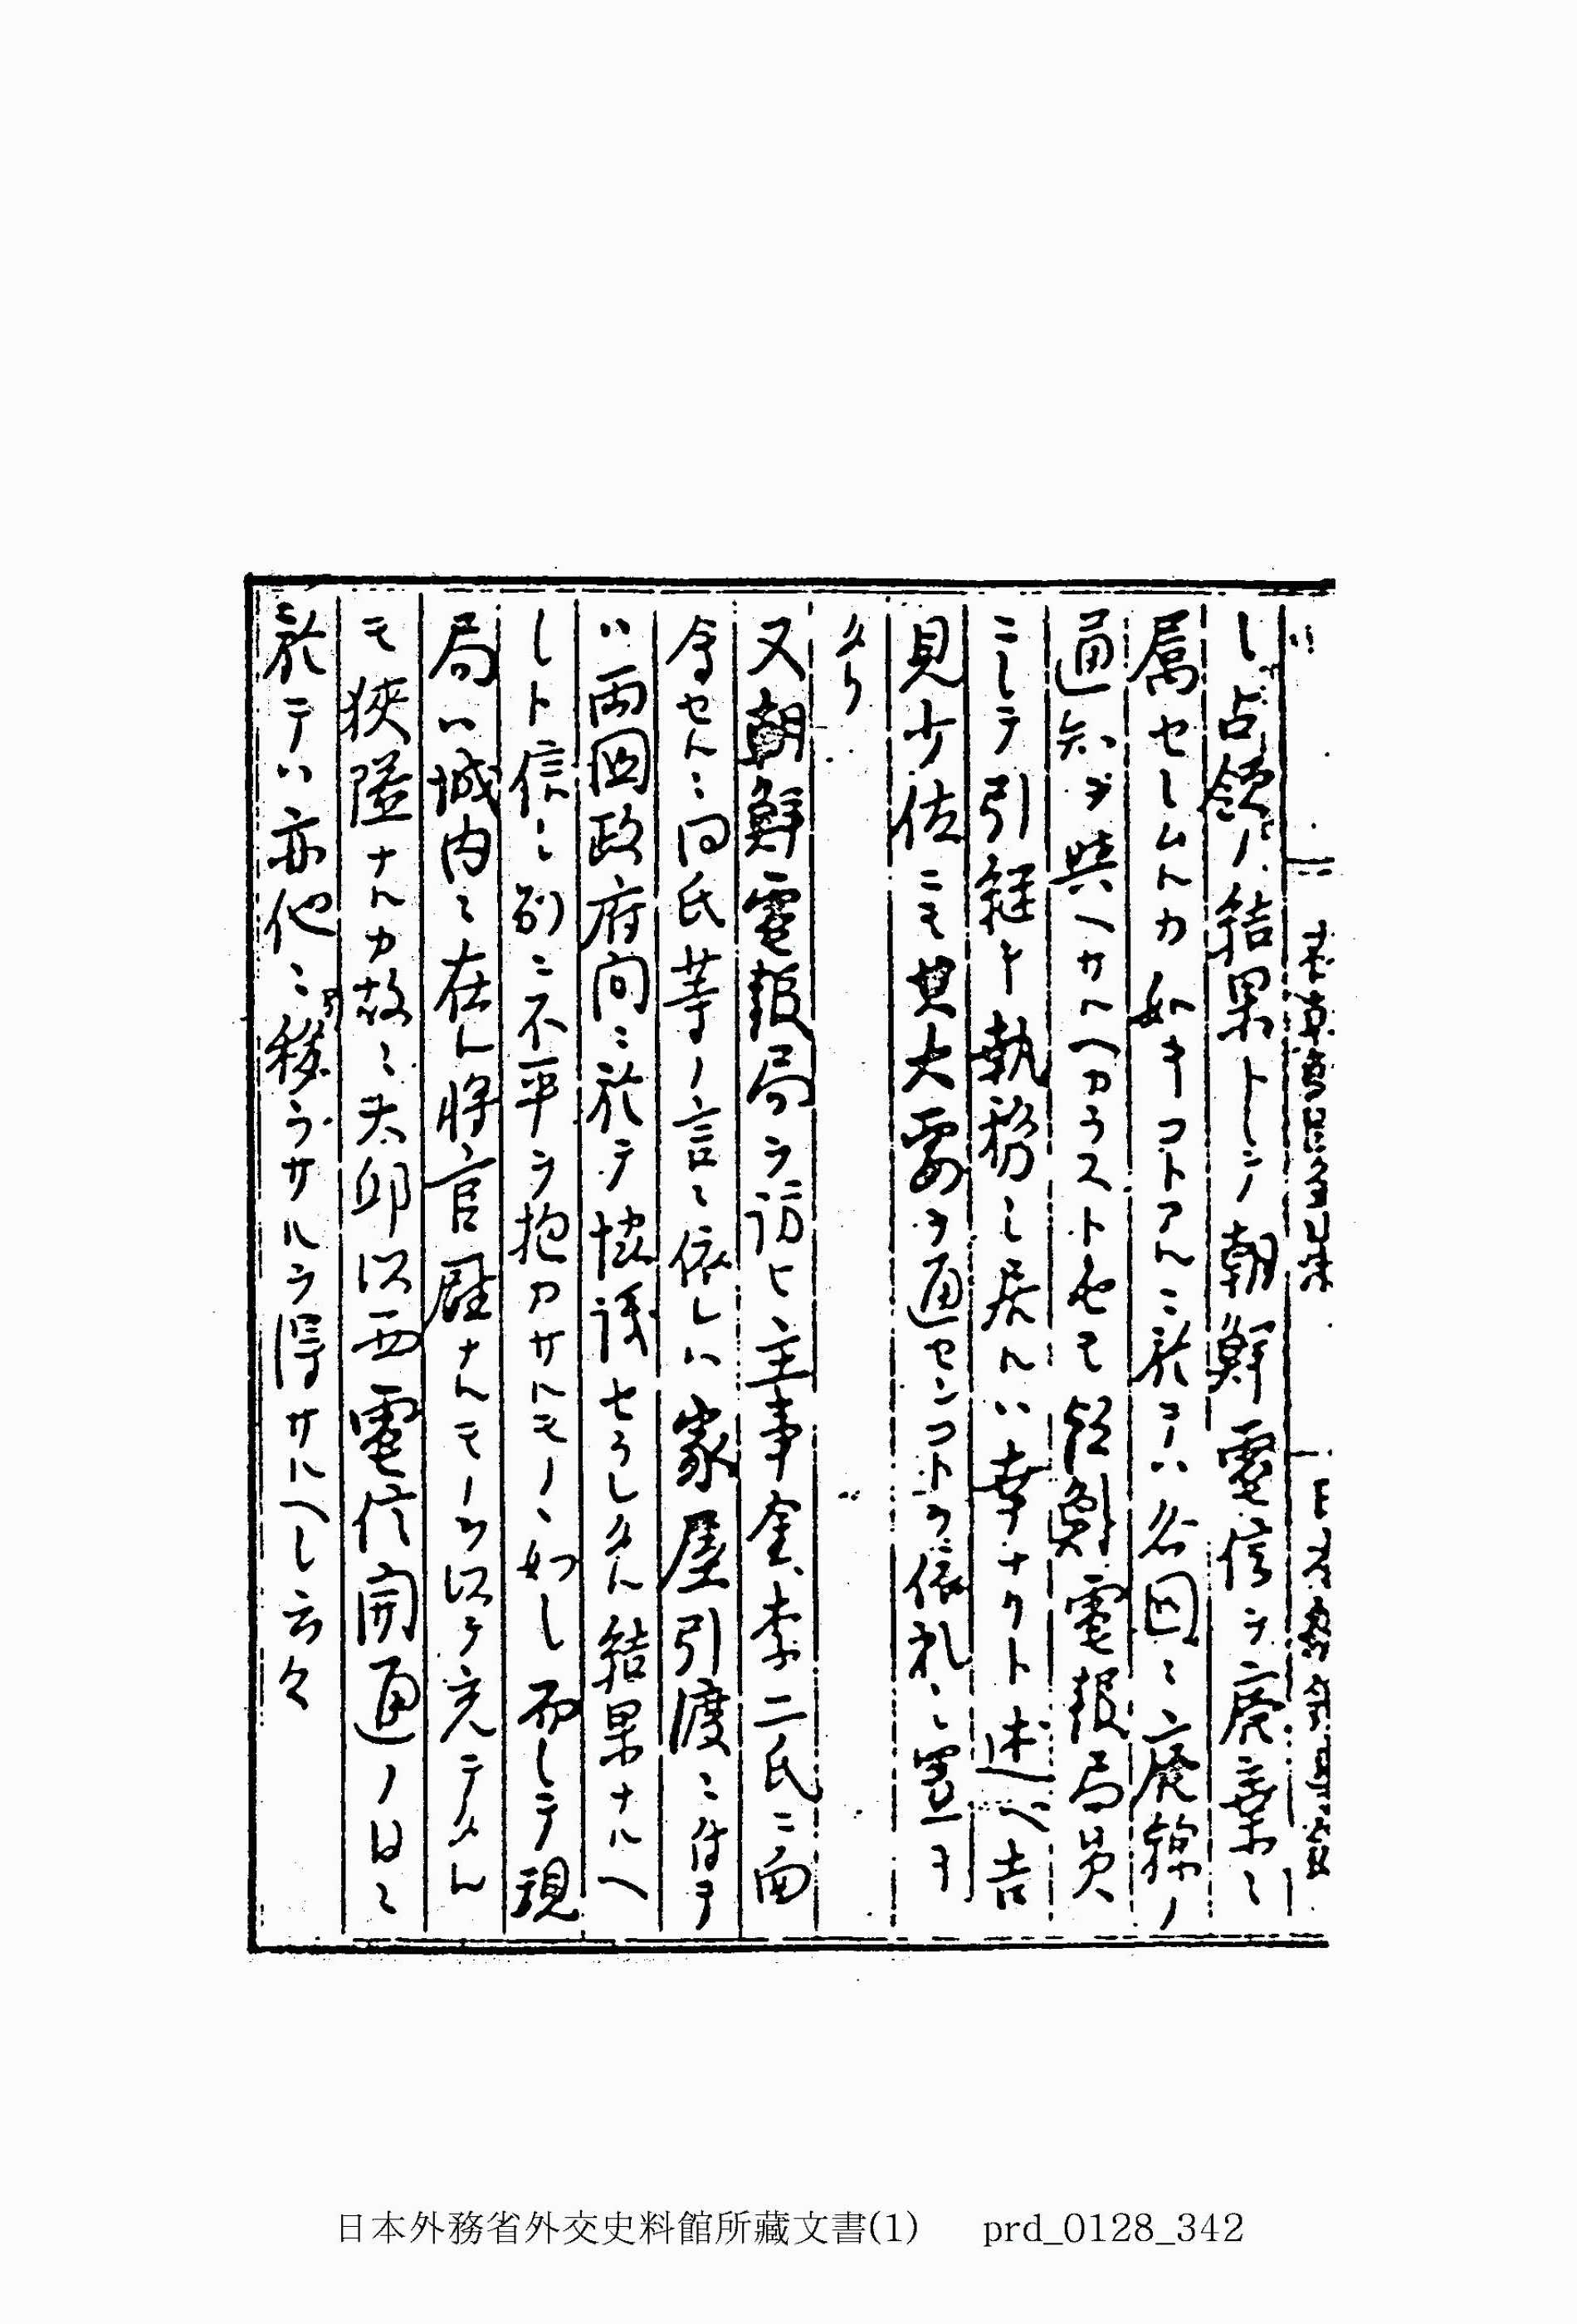 シ占領ノ結果トシテ朝鮮電信ヲ廃棄ニ
属セシムルカ如キコトアルニ於テハ各国ニ廃線ノ
通知ヲ與ヘサルヘカラスト也モ 電報局員
ニシテ引継キ執務シ居ルハ幸ナクト述ベ吉
見少佐ニモ其大要ヲ通センコトヲ依 シ置キ
タリ
又朝鮮電報局ヲ訪ヒ主事金、李二氏ニ面
会セルニ同氏等ノ言ニ依レハ家屋引渡ニ付テ
ハ両国政府間ニ於テ協議セラレタル結果ナルヘ
シト信シ別ニ不平ヲ抱カサルモノヽ如シ而シテ現
局ハ城内ニ在ル将官 ナルモノヲ以テ充テタル
モ狭隘ナルカ故ニ大邱以西電信開通ノ日ニ
於テハ亦他ニ移ラサルヲ得サルヘシ云々
日本外務省外交史料館所藏文書(1) prd_0128_342